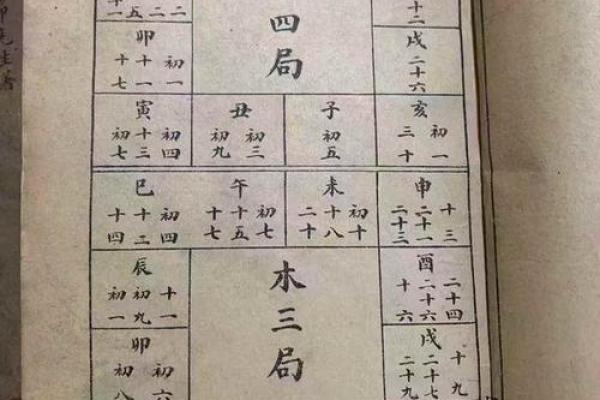 四局
戌
二十六
卯
初一
十一
十七
亥
初一
三十
子
初五
丑
初三
初九
寅
初四
十三
初七
申
十三
二十一
二十三
未
初十
十八
二十
午
初七
十五
十七
巳
初四
十二
十四
酉
二十四
二十六
十六
木三局
辰
十一
初九
初一
戌
十九
二十七
二十九
卯
初六
初
初八
先生著